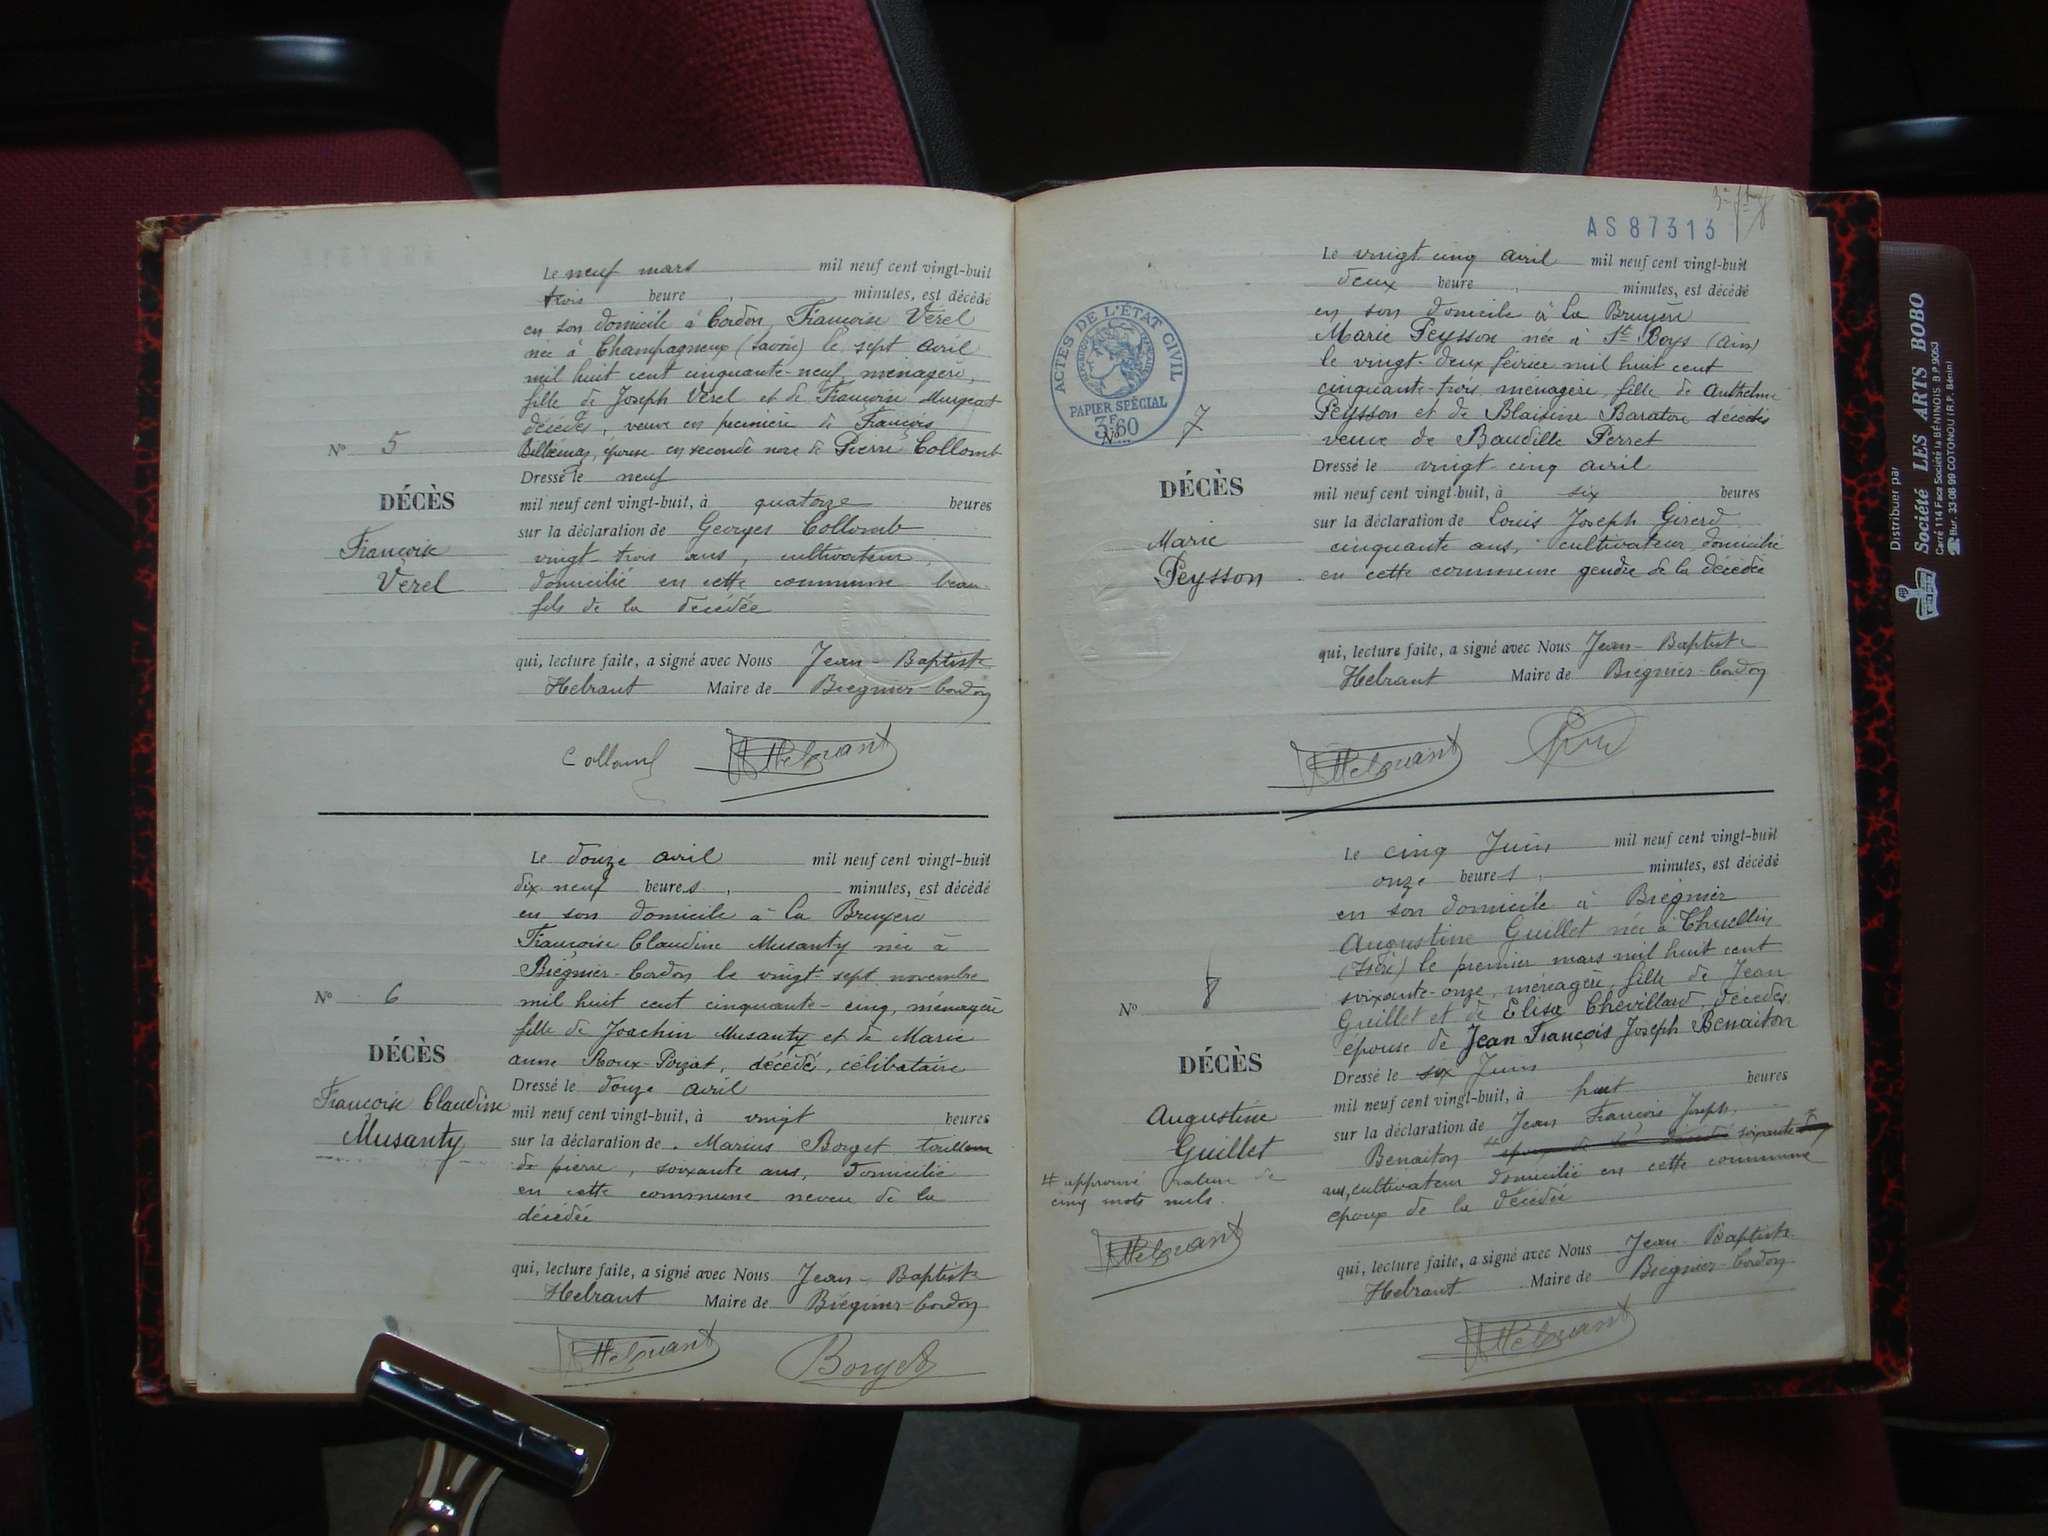 Le neuf mars mil neuf cent vingt-huit
trois heure , minutes, est décédé
en son domicile à Cordon Françoise Verel
née à Champagneux (Savoie) le sept avril
mil huit cent cinquante-neuf, ménagère,
fille de Joseph Verel et de Françoise
décédés, veuve en de François
épouse en seconde noce de Pierre Collomb
Nº 5
Dressé le neuf
DÉCÈS
mil neuf cent vingt-huit, à quatorze heures
sur la déclaration de Georges Collomb
Françoise
Verel
vingt-trois ans, cultivateur,
domicilié en cette commune beau-
fils de la décédée
qui, lecture faite, a signé avec Nous Jean-Baptiste
Hebrant Maire de Brégnier-Cordon
Collomb
Hebrant
Le douze avril mil neuf cent vingt-huit
dix neuf heures , minutes, est décédé
en son domicile à la Bruyère
Françoise Claudine Musanty née à
Brégnier-Cordon le vingt-sept novembre
mil huit cent cinquante-cinq, ménagère
Nº 6
fille de Joachin Musanty et de Marie
anne Roux-Porzat, décédé, célibataire
DÉCÈS
Dressé le douze avril
Françoise Claudine
Musanty
mil neuf cent vingt-huit, à vingt heures
sur la déclaration de Marius Borget tailleur
de pierre, soixante ans, domicilié
en cette commune neveu de la
décédée
qui, lecture faite, a signé avec Nous Jean-Baptiste
Hebrant Maire de Brégnier-Cordon
Hebrant
Borget
AS 87313
ACTES DE L'ÉTAT CIVIL
PAPIER SPÉCIAL
3F60
Le vingt cinq avril mil neuf cent vingt-huit
deux heure , minutes, est décédé
en son domicile à la Bruyère
Marie Peysson née à St Boys (Ain)
le vingt-deux février mil huit cent
cinquante-trois, ménagère, fille de Anthelme
Peysson et de Blaisine Baratin décédés
veuve de Baudille Perret
Nº 7
Dressé le vingt-cinq avril
DÉCÈS
mil neuf cent vingt-huit, à six heures
sur la déclaration de Louis Joseph Girerd
Marie
Peysson
cinquante ans, cultivateur domicilié
en cette commune gendre de la décédée
qui, lecture faite, a signé avec Nous Jean-Baptiste
Hebrant Maire de Brégnier-Cordon
Hebrant
Le cinq Juin mil neuf cent vingt-huit
onze heures , minutes, est décédé
en son domicile à Brégnier
Augustine Guillet née à Chuellin
(Isère) le premier mars mil huit cent
soixante-onze, ménagère, fille de Jean
Guillet et de Elisa Chevillard, décédés
épouse de Jean François Joseph Benaiton
Nº 8
DÉCÈS
Dressé le six Juin
mil neuf cent vingt-huit, à huit heures
Augustine
Guillet
sur la déclaration de Jean François Joseph
Benaiton # époux de la décédée soixante
ans, cultivateur domicilié en cette commune
époux de la décédée
# approuvé rature de
cinq mots nuls.
Hebrant
qui, lecture faite, a signé avec Nous Jean-Baptiste
Hebrant Maire de Brégnier-Cordon
Hebrant
Distribuer par
Société LES ARTS BOBO
Carré 114 Face Société la BÉNINOIS B.P.9063
Bur. 33-08-99 COTONOU (R.P. Bénin)